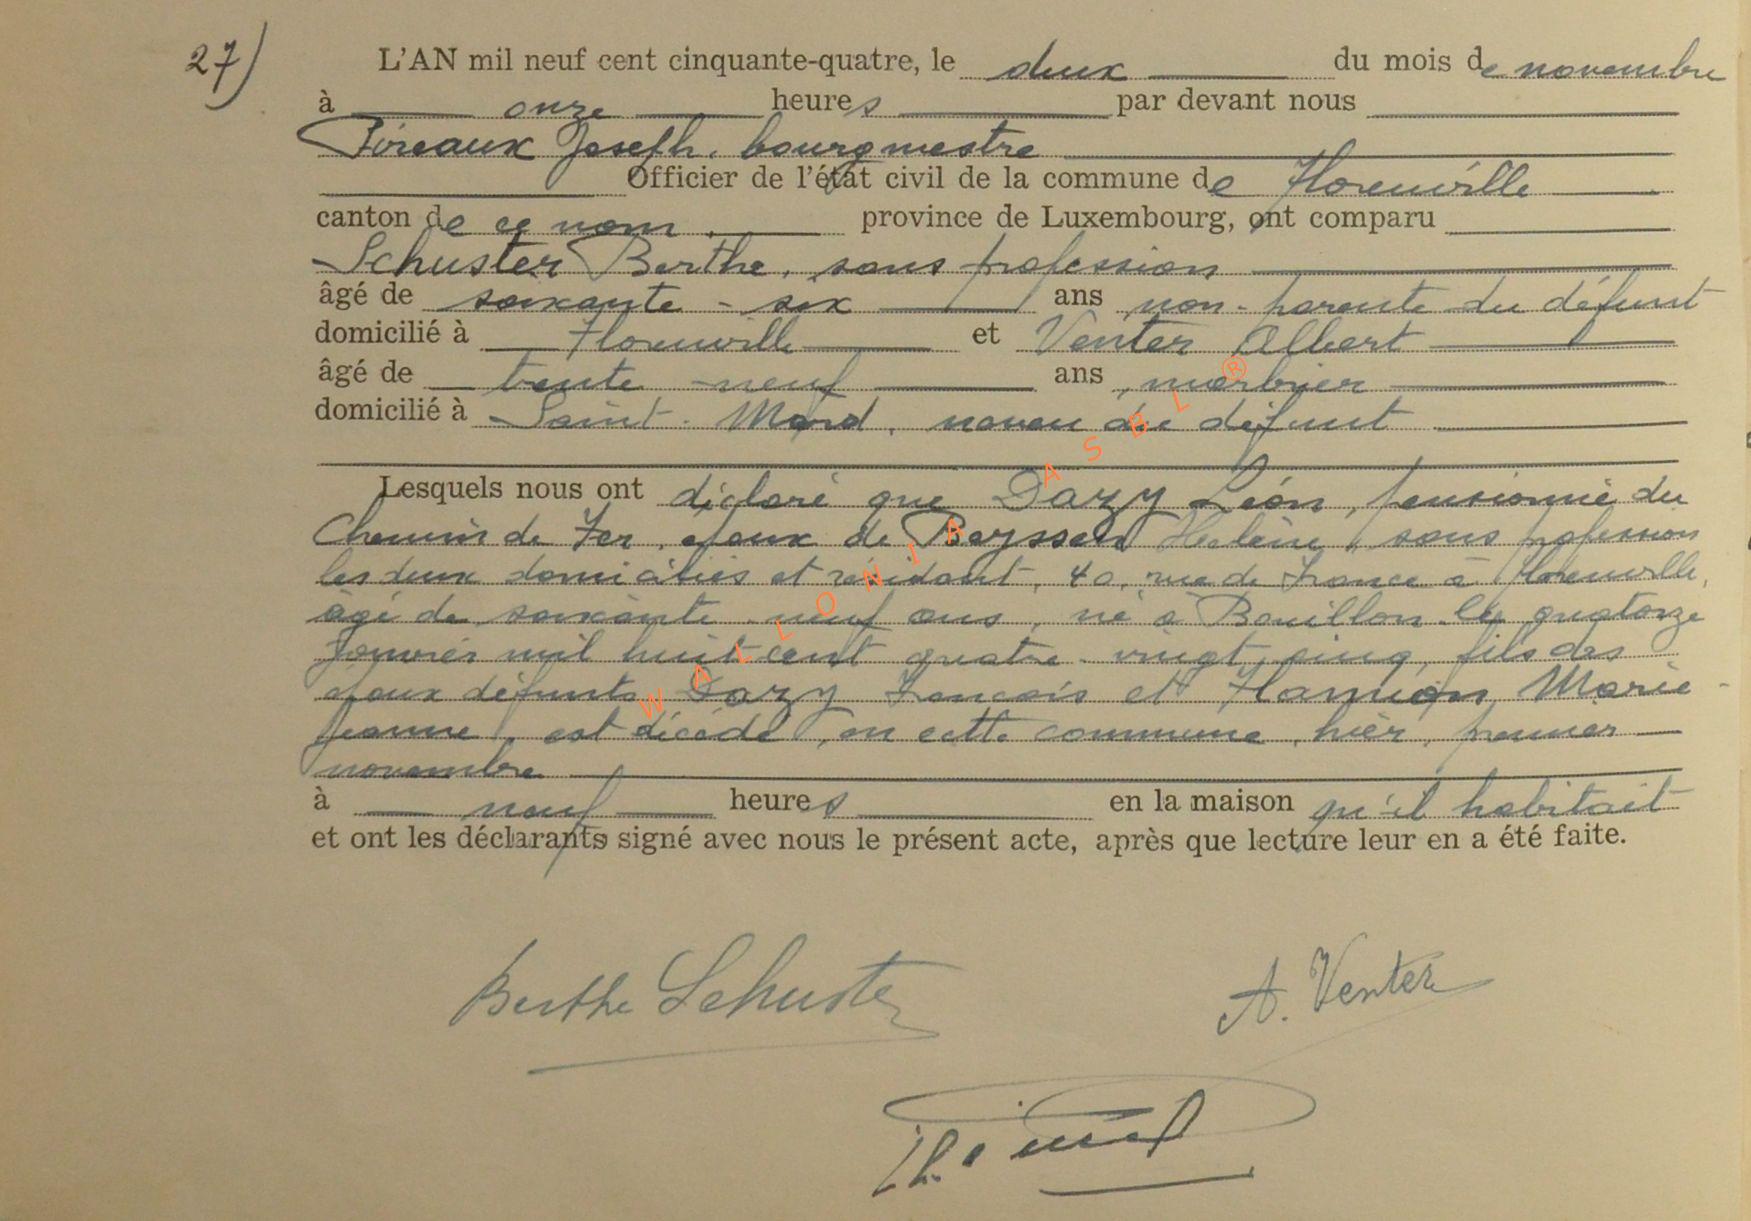 27)
L'AN mil neuf cent cinquante-quatre, le deux du mois de novembre
à onze heures par devant nous
Pireaux Joseph, bourgmestre
Officier de l'état civil de la commune de Florenville
canton de ce nom, province de Luxembourg, ont comparu
Schuster Berthe, sans profession
âgé de soixante-six ans, non-parente du défunt
domicilié à Florenville et Venter Albert
âgé de trente-neuf ans, marbrier
domicilié à Saint-Mard, neveu du défunt
Lesquels nous ont déclaré que Dazy Léon, pensionné du
Chemin de Fer, époux de Hélène, sans profession
les deux domiciliés et résidant, 40, rue de France à Florenville,
âgé de soixante-neuf ans, né à Bouillon le quatorze
janvier mil huit cent quatre-vingt cinq, fils des
époux défunts Dazy François et Flamion Marie-
Jeanne, est décédé, en cette commune, hier, premier
novembre
à neuf heures en la maison qu'il habitait
et ont les déclarants signé avec nous le présent acte, après que lecture leur en a été faite.
Berthe Schuster
A. Venter
WALLONIA ASBL ®